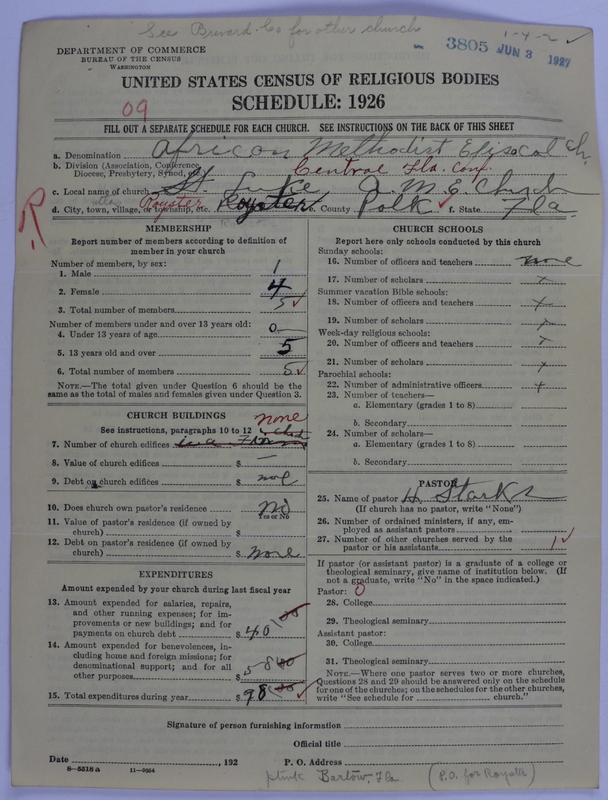 See Brevard Co for other church
1-4-2 ✓
3805 JUN 3 1927
DEPARTMENT OF COMMERCE
BUREAU OF THE CENSUS
WASHINGTON
UNITED STATES CENSUS OF RELIGIOUS BODIES
SCHEDULE: 1926
09
FILL OUT A SEPARATE SCHEDULE FOR EACH CHURCH. SEE INSTRUCTIONS ON THE BACK OF THIS SHEET
a. Denomination African Methodist Episcal Ch.
b. Division (Association, Conference, Diocese, Presbytery, Synod, etc.) Central Fla. Conf.
c. Local name of church St. Luke A. M. E. Church
d. City, town, village, or township, etc. Royster Royster e. County Polk ✓ f. State Fla.
R
MEMBERSHIP
Report number of members according to definition of
member in your church
Number of members, by sex:
1. Male 1
2. Female 4
3. Total number of members 5 ✓
Number of members under and over 13 years old:
4. Under 13 years of age 0
5. 13 years old and over 5
6. Total number of members 5 ✓
NOTE.—The total given under Question 6 should be
the same as the total of males and females given under Question 3.
CHURCH BUILDINGS
none
See instructions, paragraphs 10 to 12
7. Number of church edifices
8. Value of church edifices $ —
9. Debt on church edifices $
10. Does church own pastor's residence No
Yes or No
11. Value of pastor's residence (if owned by
church) $
12. Debt on pastor's residence (if owned by
church) $ none
EXPENDITURES
Amount expended by your church during last fiscal year
13. Amount expended for salaries, repairs,
and other running expenses; for im-
provements or new buildings; and for
payments on church debt $ 40 00
14. Amount expended for benevolences, in-
cluding home and foreign missions; for
denominational support; and for all
other purposes $ 58 00
15. Total expenditures during year $ 98 00 ✓
CHURCH SCHOOLS
Report here only schools conducted by this church
Sunday schools:
16. Number of officers and teachers none
17. Number of scholars x
Summer vacation Bible schools:
18. Number of officers and teachers x
19. Number of scholars x
Week-day religious schools:
20. Number of officers and teachers x
21. Number of scholars x
Parochial schools:
22. Number of administrative officers x
23. Number of teachers—
a. Elementary (grades 1 to 8)
b. Secondary
24. Number of scholars—
a. Elementary (grades 1 to 8)
b. Secondary
PASTOR
25. Name of pastor H Starks
(If church has no pastor, write "None")
26. Number of ordained ministers, if any, em-
ployed as assistant pastors
27. Number of other churches served by the
pastor or his assistants 1 ✓
If pastor (or assistant pastor) is a graduate of a college or
theological seminary, give name of institution below. (If
not a graduate, write "No" in the space indicated.)
Pastor: 0
28. College
29. Theological seminary
Assistant pastor:
30. College
31. Theological seminary
NOTE.—Where one pastor serves two or more churches,
Questions 28 and 29 should be answered only on the schedule
for one of the churches; on the schedules for the other churches,
write "See schedule for church."
Signature of person furnishing information
Official title
Date , 192 P. O. Address
8-5518a 11-9054
think Bartow, Fla (P.O. for Royster)